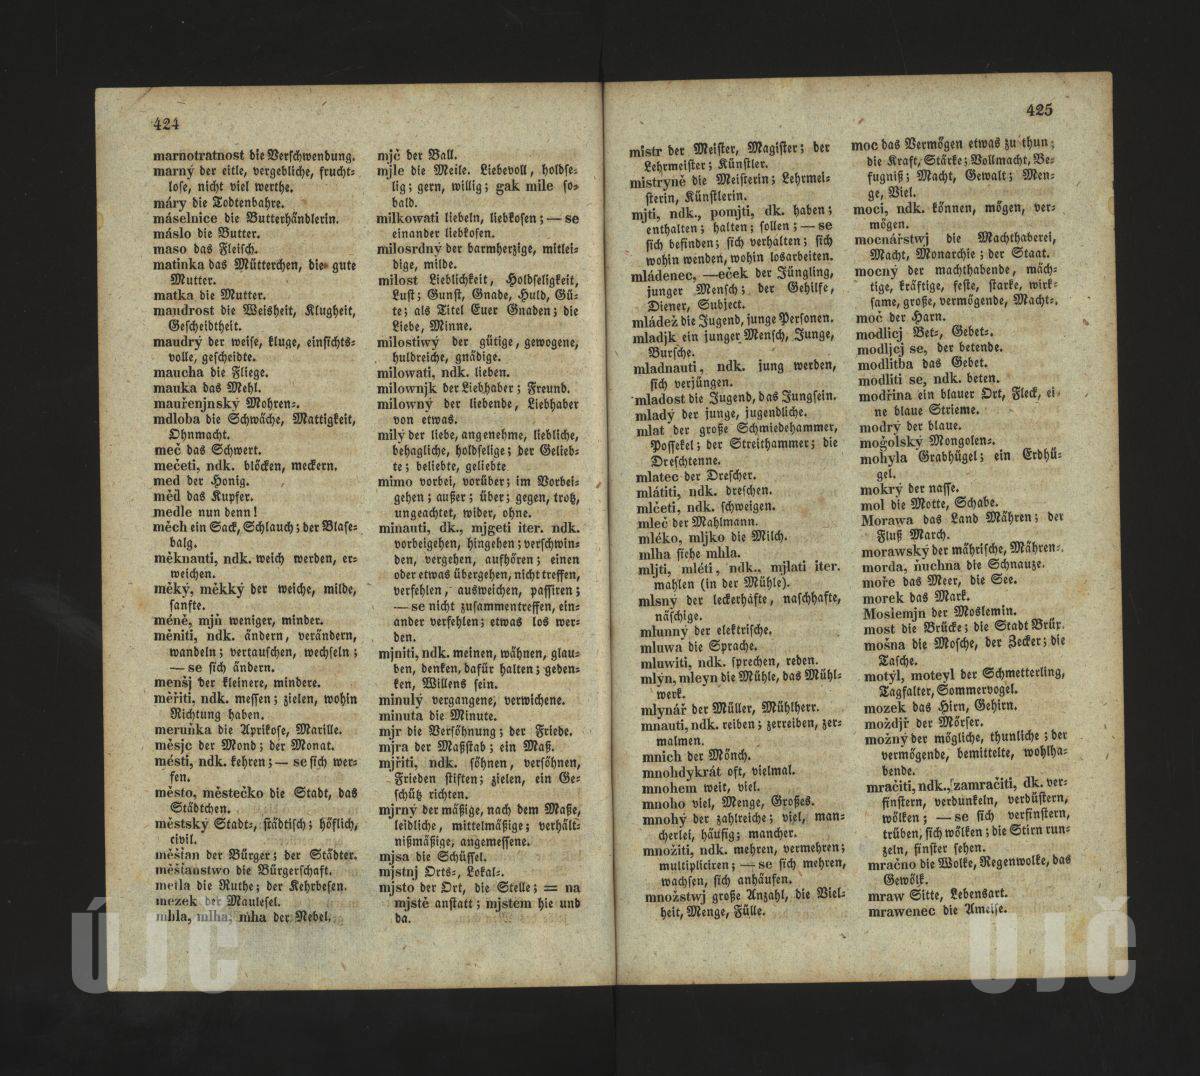 424
marnotratnost die Verschwendung.
marný der eitle, vergebliche, frucht-
lose, nicht viel werthe.
máry die Todtenbahre.
máselnice die Butterhändlerin.
máslo die Butter.
maso das Fleisch.
matinka das Mütterchen, die gute
Mutter.
matka die Mutter.
maudrost die Weisheit, Klugheit,
Gescheidtheit.
maudrý der weise, kluge, einsichts-
volle, gescheidte.
maucha die Fliege.
mauka das Mehl.
mauřenjnský Mohren-.
mdloba die Schwäche, Mattigkeit,
Ohnmacht.
meč das Schwert.
mečeti, ndk. blöcken, meckern.
med der Honig.
měd das Kupfer.
medle nun denn!
měch ein Sack, Schlauch; der Blase-
balg.
měknauti, ndk. weich werden, er-
weichen.
měký, měkký der weiche, milde,
sanfte.
méně, mjň weniger, minder.
měniti, ndk. ändern, verändern,
wandeln; vertauschen, wechseln;
— se sich ändern.
menšj der kleinere, mindere.
měřiti, ndk. messen; zielen, wohin
Richtung haben.
meruňka die Aprikose, Marille.
měsjc der Mond; der Monat.
mésti, ndk. kehren; — se sich wer-
fen.
město, městečko die Stadt, das
Städtchen.
městský Stadt-, städtisch; höflich,
civil.
měšťan der Bürger; der Städter.
měšťanstwo die Bürgerschaft.
metla die Ruthe; der Kehrbesen.
mezek der Maulesel.
mhla, mlha, mha der Nebel.
mjč der Ball.
mjle die Meile. Liebevoll, holdse-
lig; gern, willig; gak mile so-
bald.
milkowati liebeln, liebkosen; — se
einander liebkosen.
milosrdný der barmherzige, mitlei-
dige, milde.
milost Lieblichkeit, Holdseligkeit,
Lust; Gunst, Gnade, Huld, Gü-
te; als Titel Euer Gnaden; die
Liebe, Minne.
milostiwý der gütige, gewogene,
huldreiche, gnädige.
milowati, ndk. lieben.
milownjk der Liebhaber; Freund.
milowný der liebende, Liebhaber
von etwas.
milý der liebe, angenehme, liebliche,
behagliche, holdselige; der Gelieb-
te; beliebte, geliebte
mimo vorbei, vorüber; im Vorbei-
gehen; außer; über; gegen, trotz,
ungeachtet, wider, ohne.
minauti, dk., mjgeti iter. ndk.
vorbeigehen, hingehen; verschwin-
den, vergehen, aufhören; einen
oder etwas übergehen, nicht treffen,
verfehlen, ausweichen, passiren;
— se nicht zusammentreffen, ein-
ander verfehlen; etwas los wer-
den.
mjniti, ndk. meinen, wähnen, glau-
ben, denken, dafür halten; geden-
ken, Willens sein.
minulý vergangene, verwichene.
minuta die Minute.
mjr die Versöhnung; der Friede.
mjra der Maßstab; ein Maß.
mjřiti, ndk. söhnen, versöhnen,
Frieden stiften; zielen, ein Ge-
schütz richten.
mjrný der mäßige, nach dem Maße,
leidliche, mittelmäßige; verhält-
nißmäßige, angemessene.
mjsa die Schüssel.
mjstnj Orts-, Lokal-.
mjsto der Ort, die Stelle; = na
mjstě anstatt; mjstem hie und
da.
425
mistr der Meister, Magister; der
Lehrmeister; Künstler.
mistryně die Meisterin; Lehrmei-
sterin, Künstlerin.
mjti, ndk., pomjti, dk. haben;
enthalten; halten; sollen; — se
sich befinden; sich verhalten; sich
wohin wenden, wohin losarbeiten.
mládenec, —eček der Jüngling,
junger Mensch; der Gehilfe,
Diener, Subject.
mládež die Jugend, junge Personen.
mladjk ein junger Mensch, Junge,
Bursche.
mladnauti, ndk. jung werden,
sich verjüngen.
mladost die Jugend, das Jungsein.
mladý der junge, jugendliche.
mlat der große Schmiedehammer,
Possekel; der Streithammer; die
Dreschtenne.
mlatec der Drescher.
mlátiti, ndk. dreschen.
mlčeti, ndk. schweigen.
mleč der Mahlmann.
mléko, mljko die Milch.
mlha siehe mhla.
mljti, mléti, ndk., mjlati iter.
mahlen (in der Mühle).
mlsný der leckerhafte, naschhafte,
näschige.
mlunný der elektrische.
mluwa die Sprache.
mluwiti, ndk. sprechen, reden.
mlýn, mleyn die Mühle, das Mühl-
werk.
mlynář der Müller, Mühlherr.
mnauti, ndk. reiben; zerreiben, zer-
malmen.
mnich der Mönch.
mnohdykrát oft, vielmal.
mnohem weit, viel.
mnoho viel, Menge, Großes.
mnohý der zahlreiche; viel, man-
cherlei, häufig; mancher.
množiti, ndk. mehren, vermehren;
multipliciren; — se sich mehren,
wachsen, sich anhäufen.
množstwj große Anzahl, die Viel-
heit, Menge, Fülle.
moc das Vermögen etwas zu thun;
die Kraft, Stärke; Vollmacht, Be-
fugniß; Macht, Gewalt; Men-
ge, Viel.
moci, ndk. können, mögen, ver-
mögen.
mocnářstwj die Machthaberei,
Macht, Monarchie; der Staat.
mocný der machthabende, mäch-
tige, kräftige, feste, starke, wirk-
same, große, vermögende, Macht-.
moč der Harn.
modlicj Bet-, Gebet-.
modljcj se, der betende.
modlitba das Gebet.
modliti se, ndk. beten.
modřina ein blauer Ort, Fleck, ei-
ne blaue Strieme.
modrý der blaue.
mogolský Mongolen-.
mohyla Grabhügel; ein Erdhü-
gel.
mokrý der nasse.
mol die Motte, Schabe.
Morawa das Land Mähren; der
Fluß March.
morawský der mährische, Mähren-.
morda, ňuchna die Schnauze.
moře das Meer, die See.
morek das Mark.
Moslemjn der Moslemin.
most die Brücke; die Stadt Brüx.
mošna die Mosche, der Zecker; die
Tasche.
motýl, moteyl der Schmetterling,
Tagfalter, Sommervogel.
mozek das Hirn, Gehirn.
moždjř der Mörser.
možný der mögliche, thunliche; der
vermögende, bemittelte, wohlha-
bende.
mračiti, ndk., zamračiti, dk. ver-
finstern, verdunkeln, verdüstern,
wölken; — se sich verfinstern,
trüben, sich wölken; die Stirn run-
zeln, finster sehen.
mračno die Wolke, Regenwolke, das
Gewölk.
mraw Sitte, Lebensart.
mrawenec die Ameise.
ÚJČ
ÚJČ